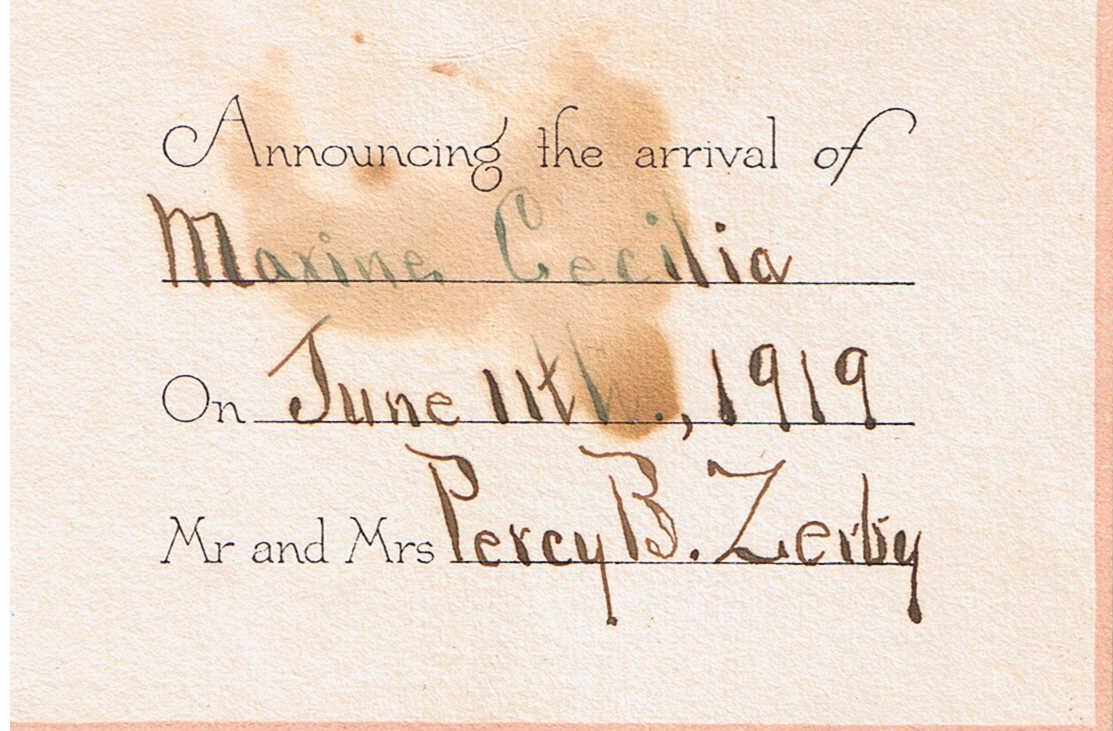 Announcing the arrival of
Maxine Cecilia
On June 11th., 1919
Mr and Mrs Percy B. Zerby